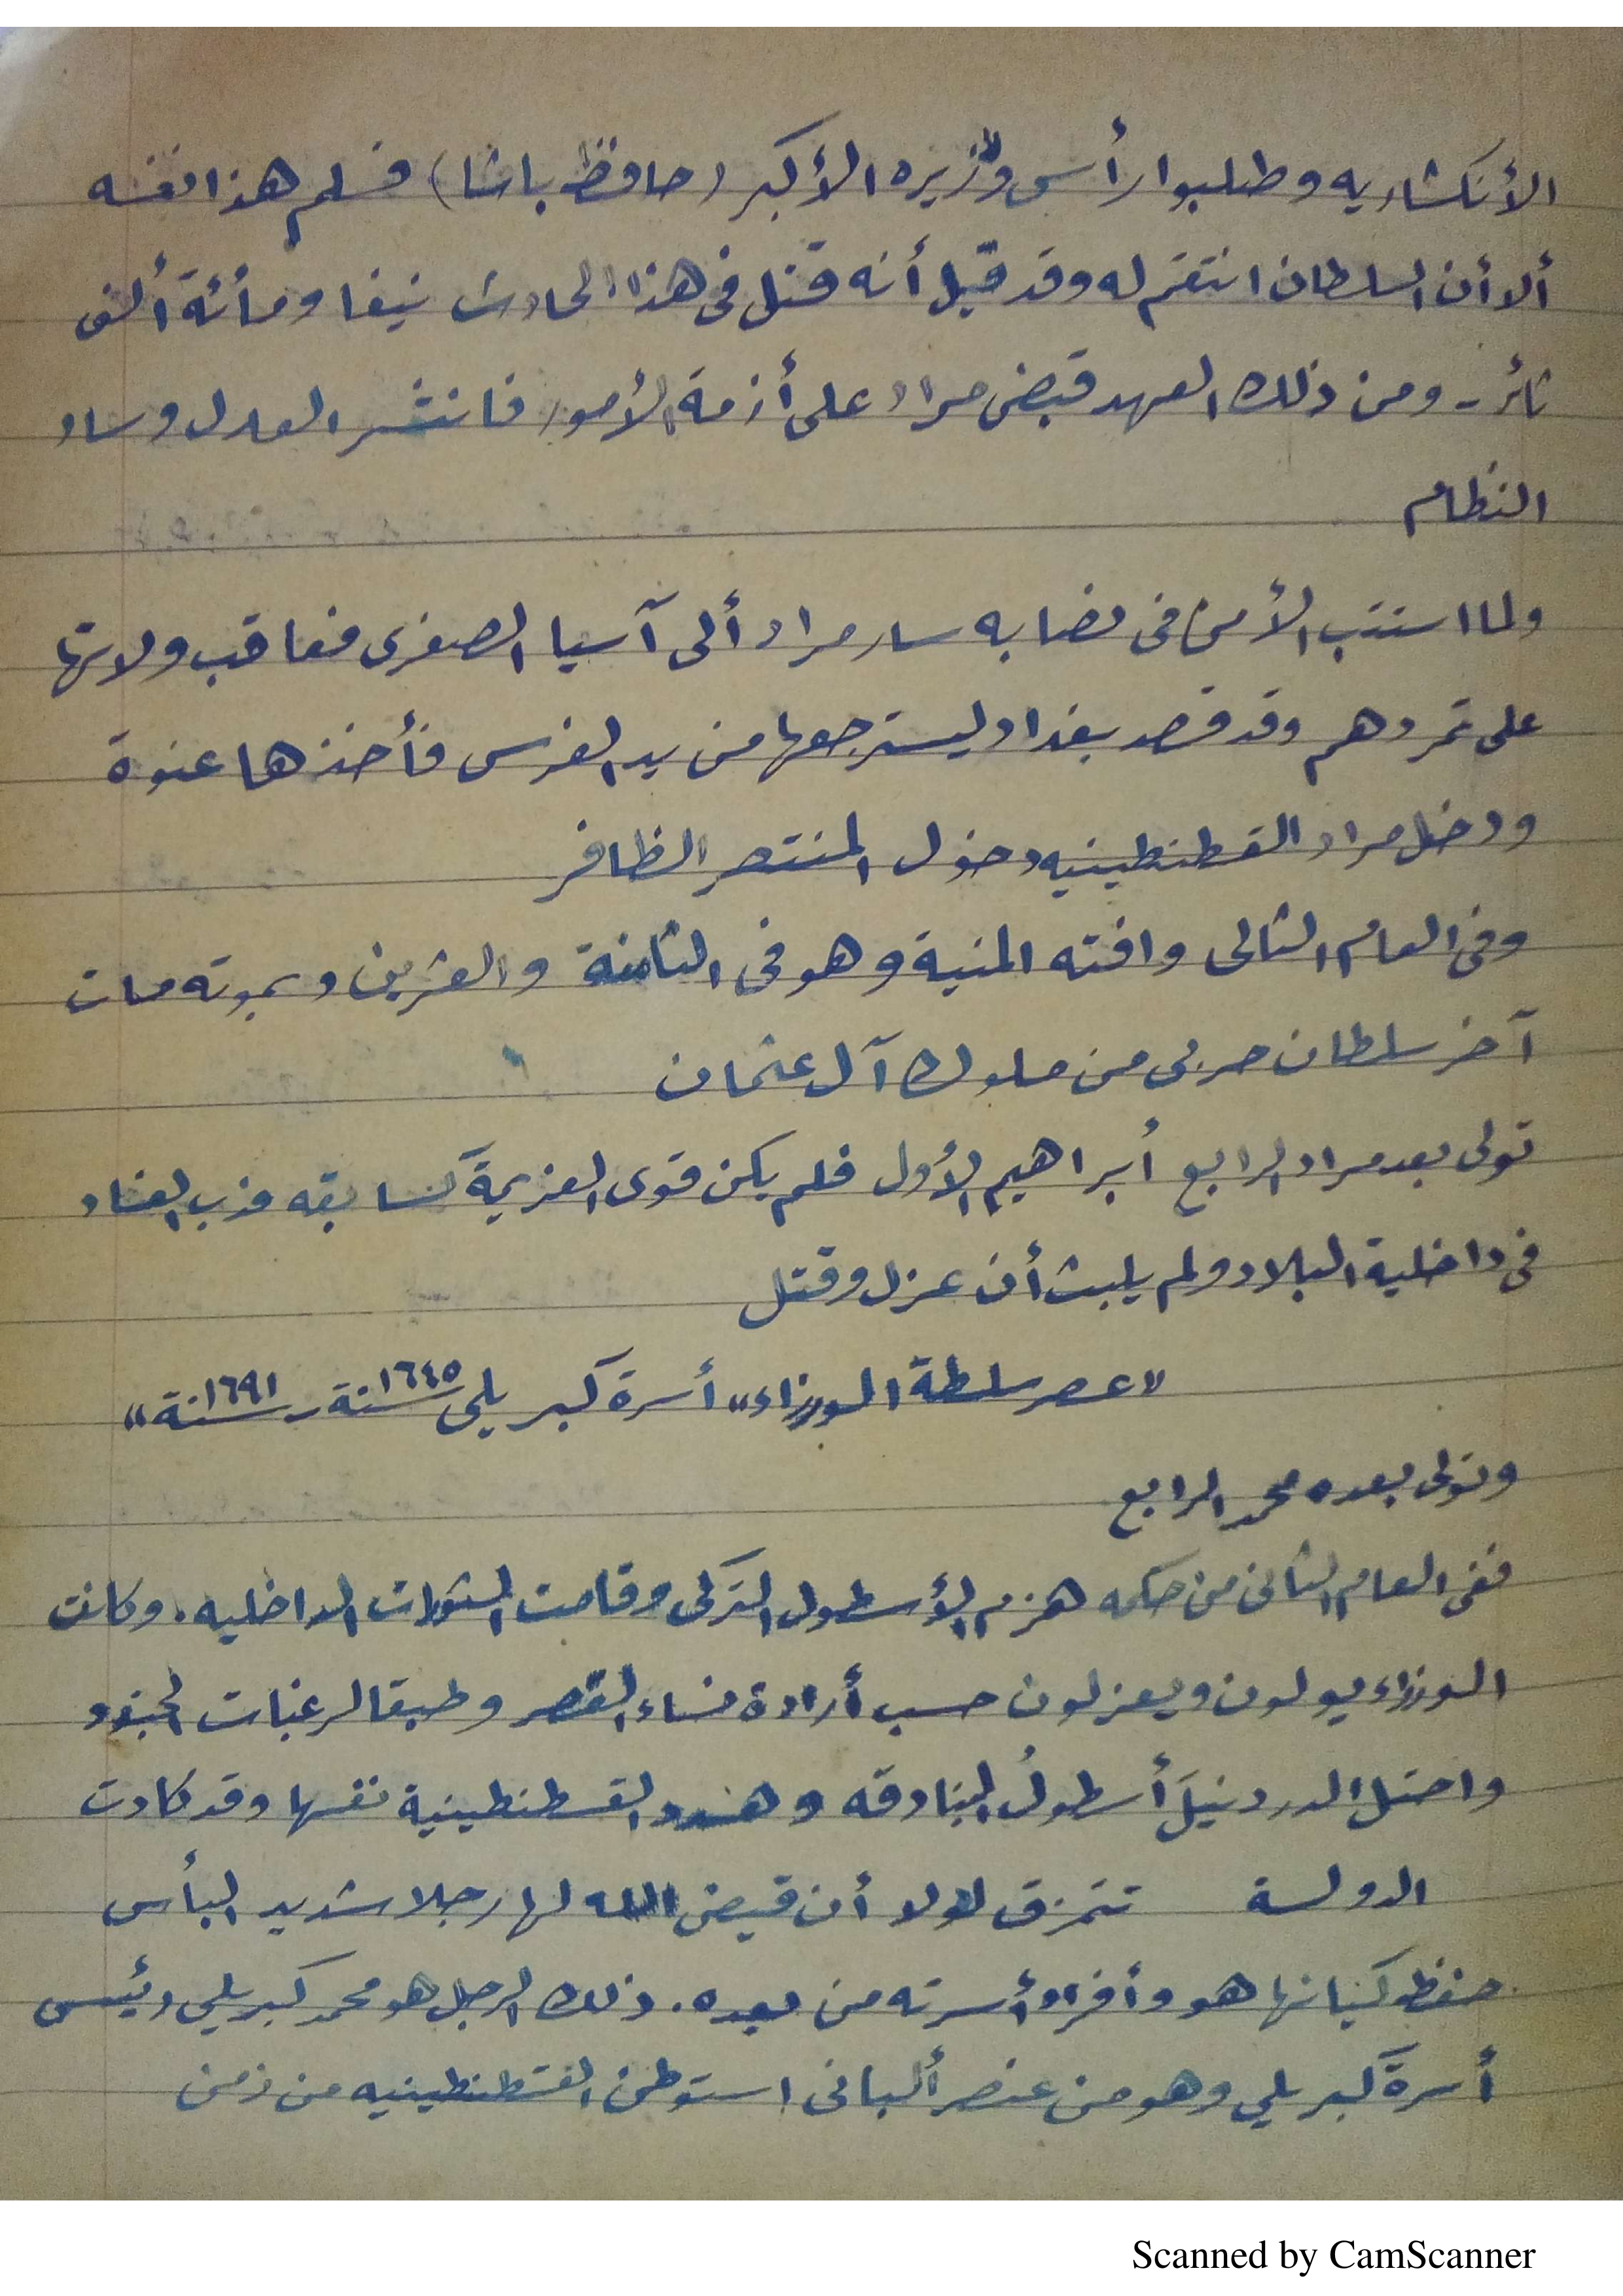 الأنكشاريه وطلبوا رأس وزيره الأكبر (حافظ باشا) فسلم هذا نفسه
ألا أن السلطان انتقم له وقد قيل أنه قتل فى هذا الحادث نيفا ومأئة ألف
ثائر - ومن ذلك العهد قبض مراد على أزمة الأمور فانتشر العدل وساد
النظام
ولما استتب الأمن فى نصابه سار مراد ألى آسيا الصغرى فعاقب ولاتها
على تمردهم وقد قصد بغداد ليسترجعها من يد الفرس فأخذها عنوة
ودخل مراد القسطنطينيه دخول المنتصر الظافر
وفى العام التالى وافته المنية وهو فى الثامنة والعشرين وبموته مات
آخر سلطان حربى من ملوك آل عثمان
تولى بعد مراد الرابع أبراهيم الأول فلم يكن قوى العزيمة كسابقه فدب الفساد
فى داخلية البلاد ولم يلبث أن عزل وقتل
"عصر سلطة الوزراء" أسرة كبريلى سنة ١٦٤٥ - سنة ١٦٩١"
وتولى بعده محمد الرابع
ففى العام الثانى من حكمه هزم الأسطول التركى وقامت الثورات الداخليه. وكانت
الوزراء يولون ويعزلون حسب أرادة نساء القصر وطبقا لرغبات الجنود
واحتل الدردنيلَ أسطولُ البنادقه وهدد القسطنطينية نفسها وقد كادت
الدولة تتمزق لولا أن قيض الله لها رجلا شديد البأس
حفظ كيانها هو وأفراد أسرته من بعده. ذلك الرجل هو محمد كبريلي رئيس
أسرة كبريلي وهو من عنصر ألبانى استوطن القسطنطينيه من زمن
Scanned by CamScanner